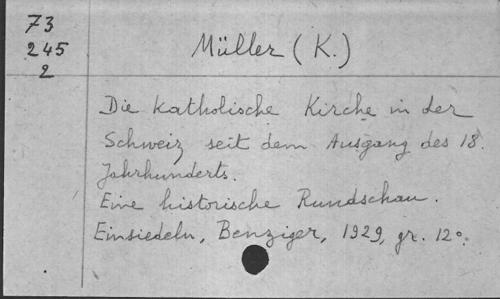 73
245
2
Müller (K.)
Die katholische Kirche in der
Schweiz seit dem Ausgang des 18.
Jahrhunderts.
Eine historische Rundschau.
Einsiedeln, Benziger, 1929, gr. 12°.